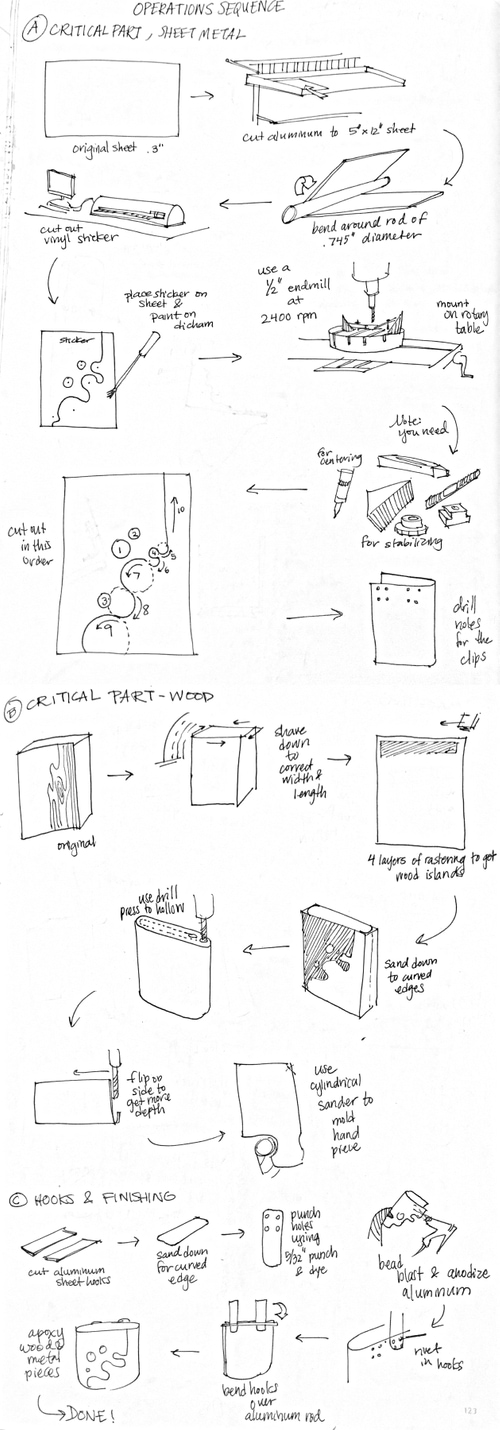 OPERATIONS SEQUENCE
A CRITICAL PART, SHEET METAL
original sheet .3"
cut aluminum to 5"x12" sheet
bend around rod of
.745" diameter
cut out
vinyl sticker
place sticker on
sheet &
paint on
dicham
sticker
use a
1/2" endmill
at
2400 rpm
mount
on rotary
table
Note:
you need
for
centering
for stabilizing
cut out
in this
order
1
2
3
4
5
6
7
8
9
10
drill
holes
for the
clips
B CRITICAL PART-WOOD
original
shave
down
to
correct
width &
length
4 layers of rastering to get
wood islands
sand down
to curved
edges
use drill
press to hollow
flip on
side to
get more
depth
use
cylindrical
sander to
mold
hand
piece
C HOOKS & FINISHING
cut aluminum
sheet hooks
sand down
for curved
edge
punch
holes
using
5/32" punch
& dye
bead
blast & anodize
aluminum
rivet
in hooks
bend hooks
over
aluminum rod
apoxy
wood &
metal
pieces
DONE!
127